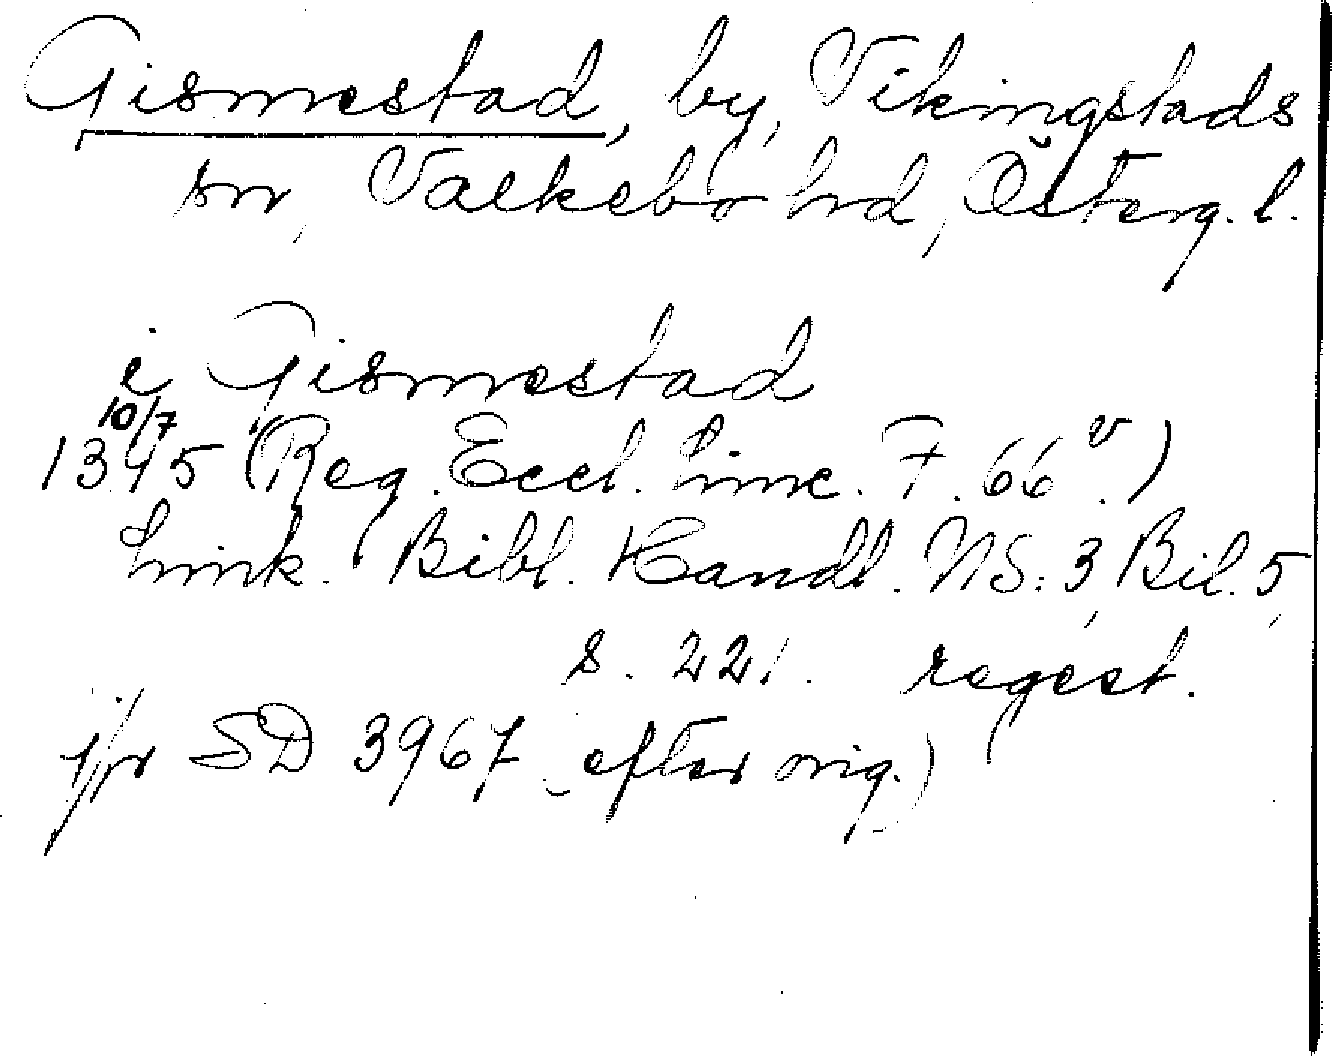 Gismestad, by, Vikingstads
sn, Valkebo hrd, Österg. l.
i Gismestad
10/7
1345 (Reg. Eccl. Linc. F. 66 v.)
Link. Bibl. Handl. NS: 3, Bil. 5,
s. 221. regest.
jfr SD 3967 (efter orig.)